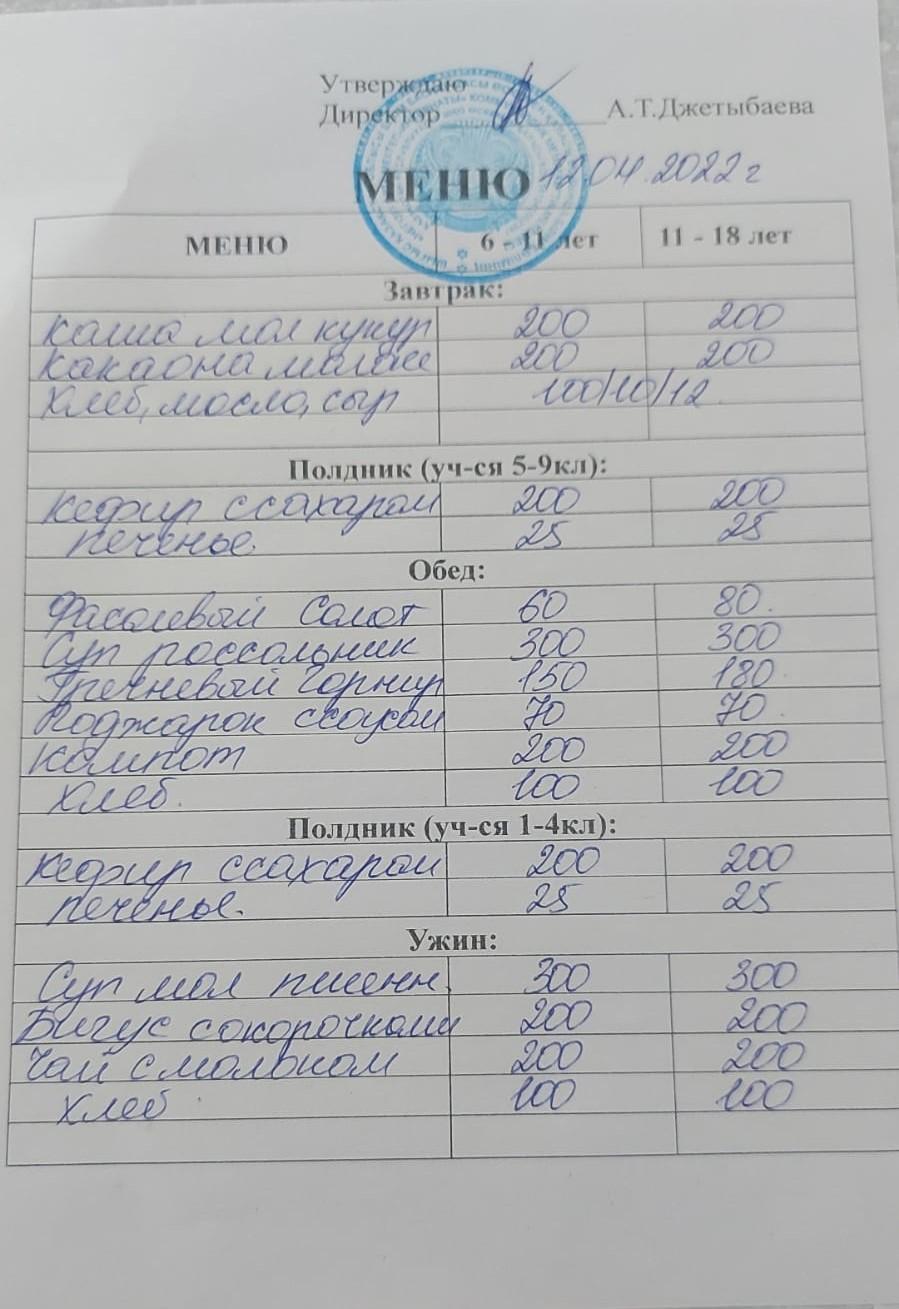 Утверждаю
Директор А.Т.Джетыбаева
МЕНЮ 12.04.2022 г
МЕНЮ 6 - 11 лет 11 - 18 лет
Завтрак:
Каша мол кукур 200 200
Какао на молоке 200 200
Хлеб, масло, сыр 100/10/12
Полдник (уч-ся 5-9кл):
Кефир с сахаром 200 200
печенье. 25 25
Обед:
Фасолевый Салат 60 80.
Суп россольник 300 300
Гречневый гарнир 150 180
Поджарок с соусом 70 70
Компот 200 200
Хлеб. 100 100
Полдник (уч-ся 1-4кл):
Кефир с сахаром 200 200
печенье. 25 25
Ужин:
Суп мол пшенн. 300 300
Бигус с окорочками 200 200
Чай с молоком 200 200
Хлеб 100 100